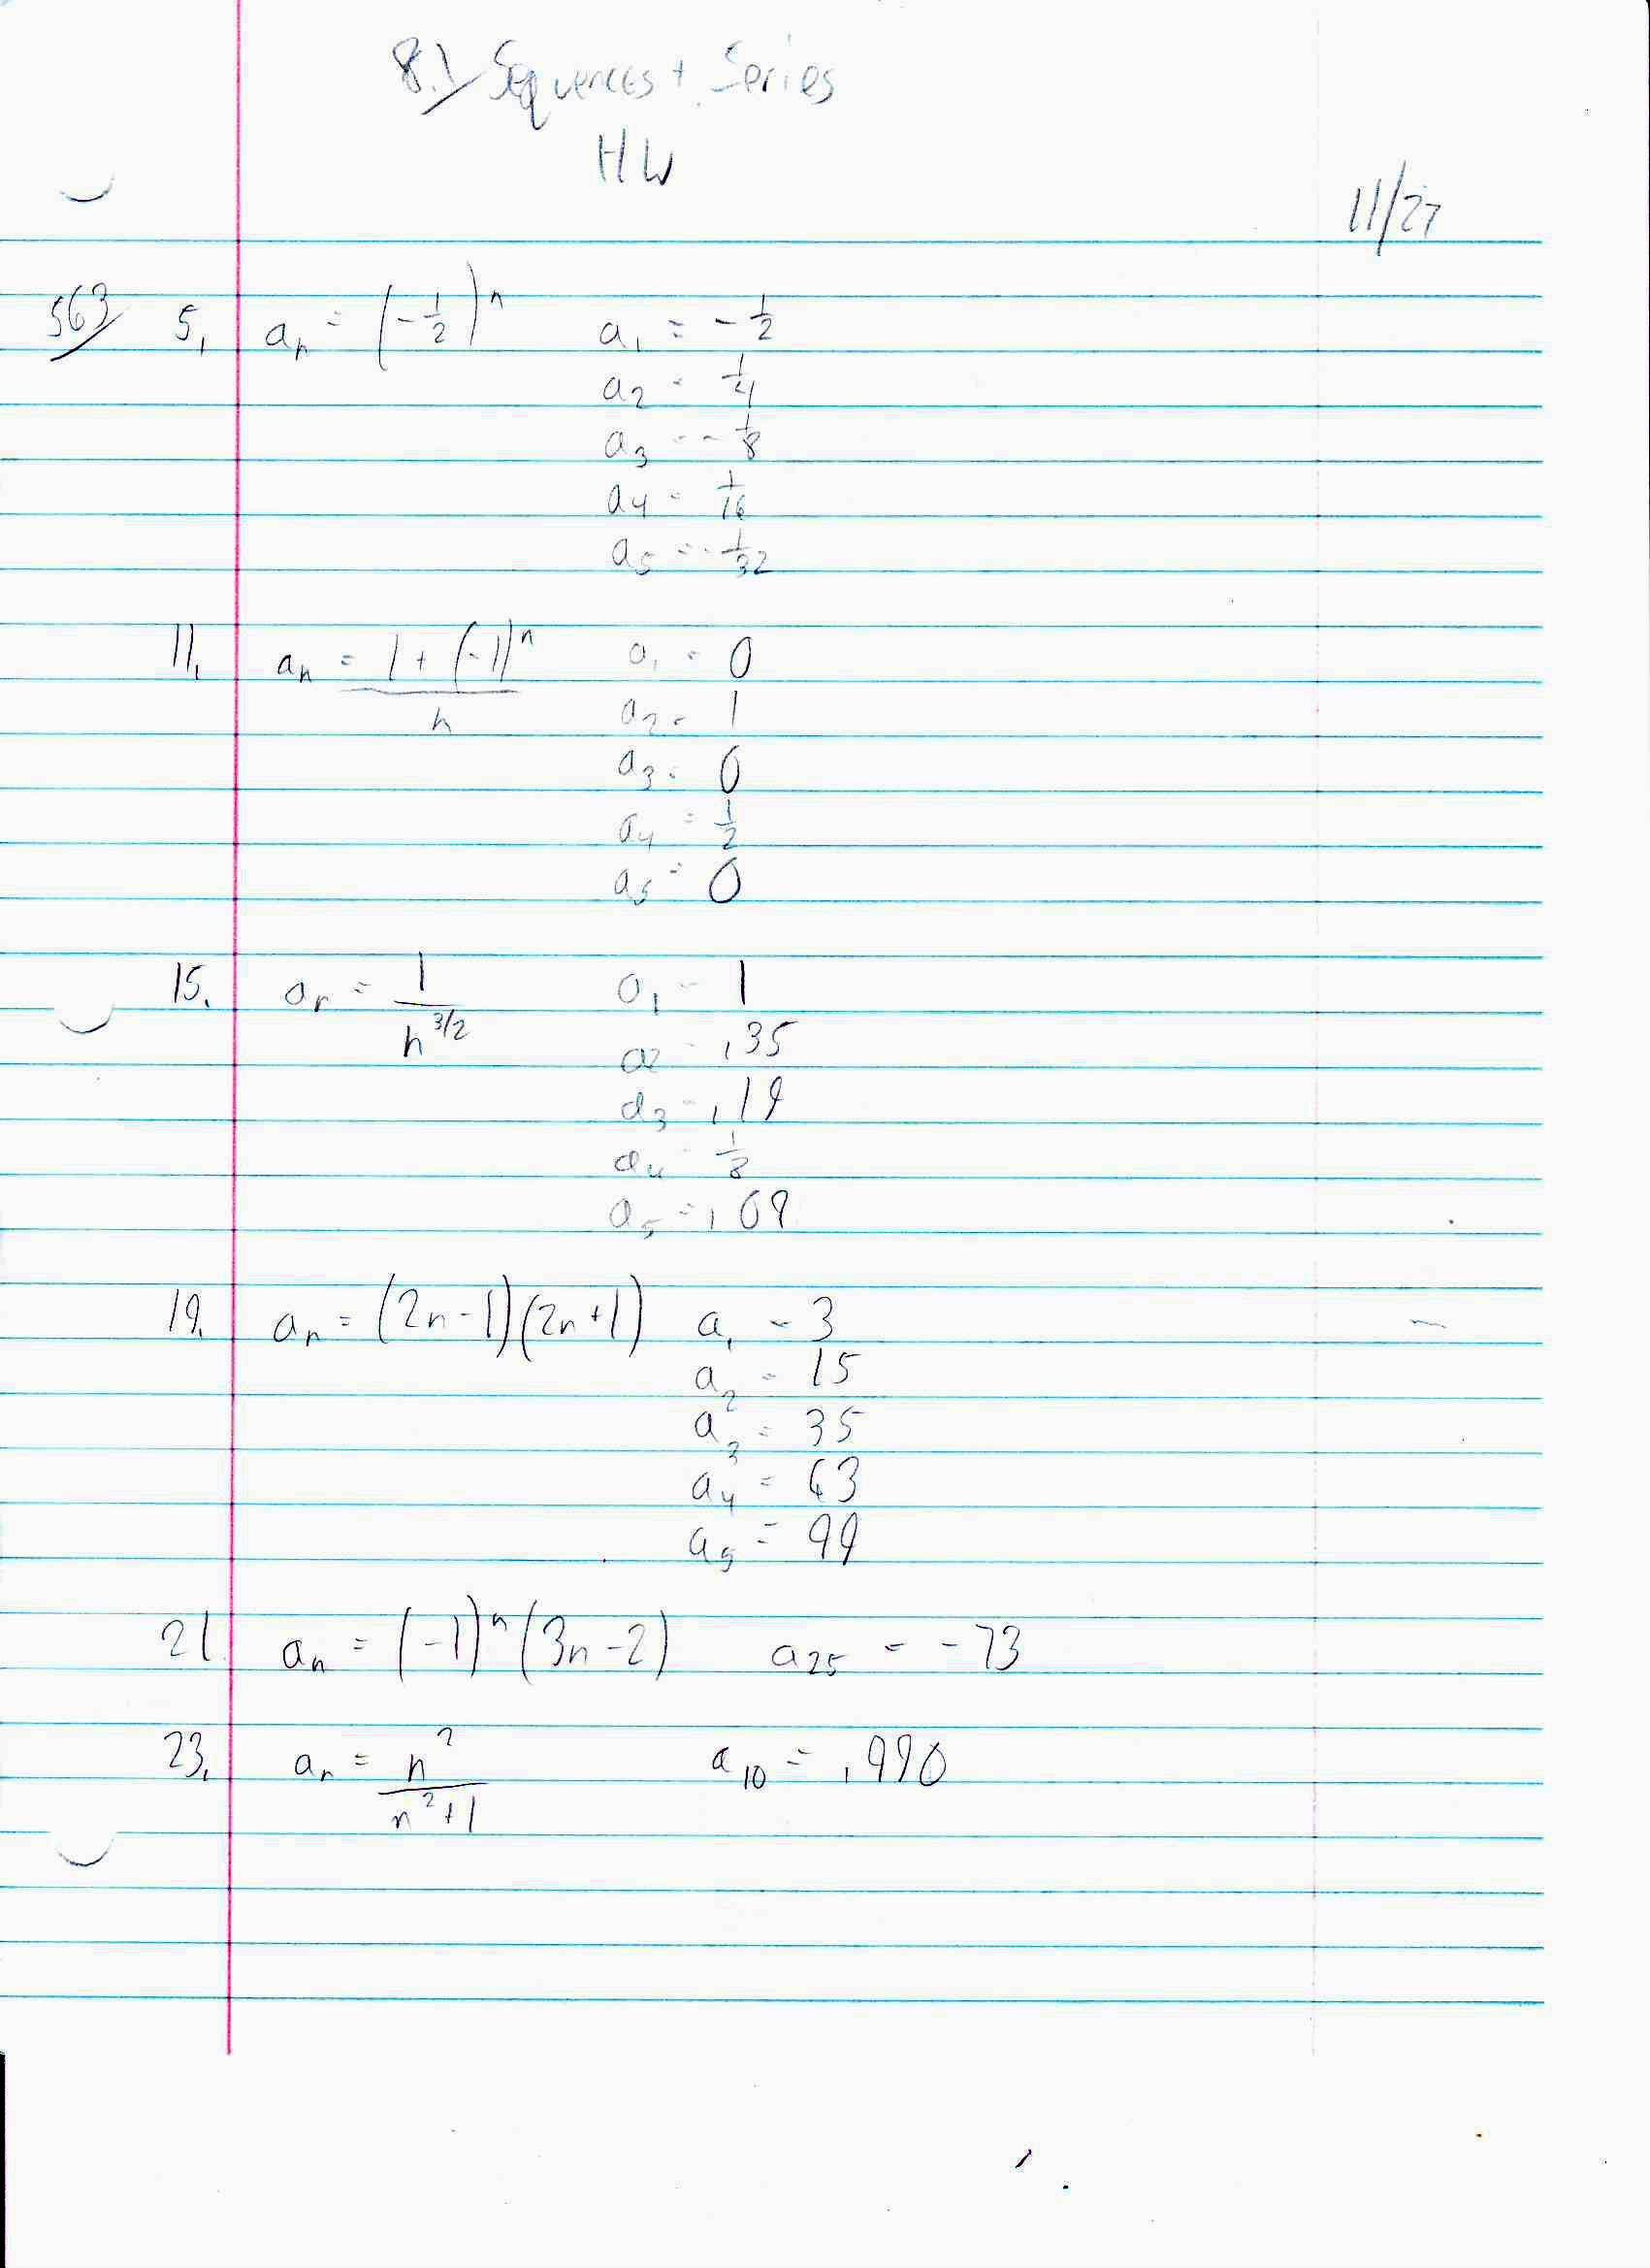 8.1 Sequences + Series
HW
11/27
563 5. aₙ = (-1/2)ⁿ a₁ = -1/2
a₂ = 1/4
a₃ = -1/8
a₄ = 1/16
a₅ = -1/32
11. aₙ = 1 + (-1)ⁿ / n a₁ = 0
a₂ = 1
a₃ = 0
a₄ = 1/2
a₅ = 0
15. aₙ = 1 / n^3/2 a₁ = 1
a₂ = .35
a₃ = .19
a₄ = 1/8
a₅ = .09
19. aₙ = (2n-1)(2n+1) a₁ = 3
a₂ = 15
a₃ = 35
a₄ = 63
a₅ = 99
21. aₙ = (-1)ⁿ(3n-2) a₂₅ = -73
23. aₙ = n² / n²+1 a₁₀ = .990